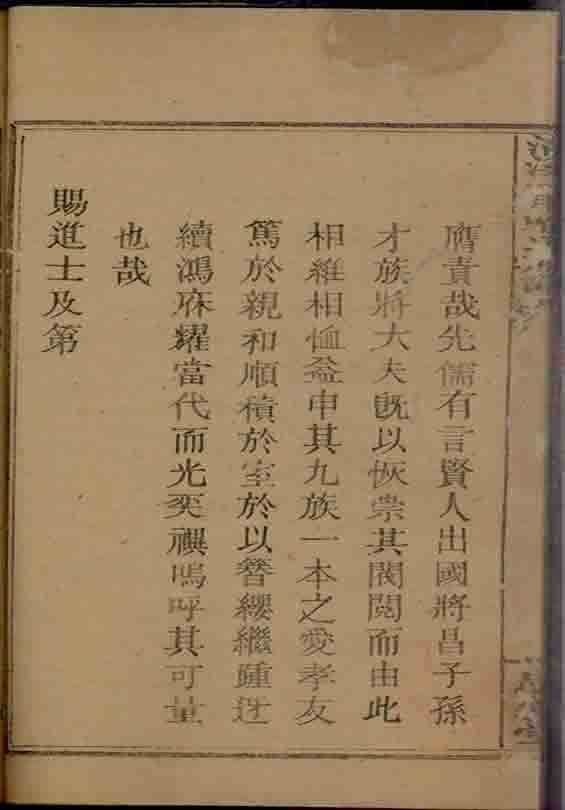 膺責哉先儒有言賢人出國將昌子孫
才族將大夫既以恢崇其閥閱而由此
相維相恤益申其九族一本之愛孝友
篤於親和順積於室於以簪纓繼踵迓
續鴻庥耀當代而光奕禩嗚呼其可量
也哉
賜進士及第